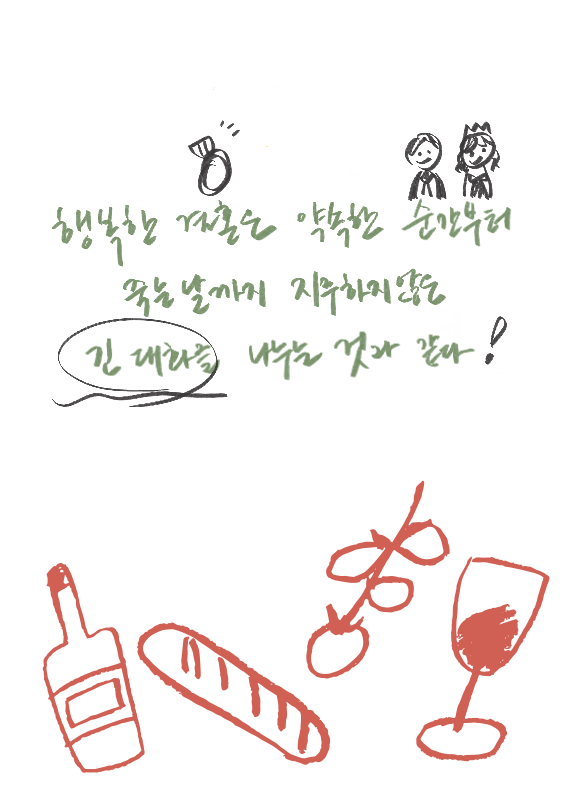 행복한 결혼은 약속한 순간부터
죽는 날까지 지루하지 않은
긴 대화를 나누는 것과 같다!